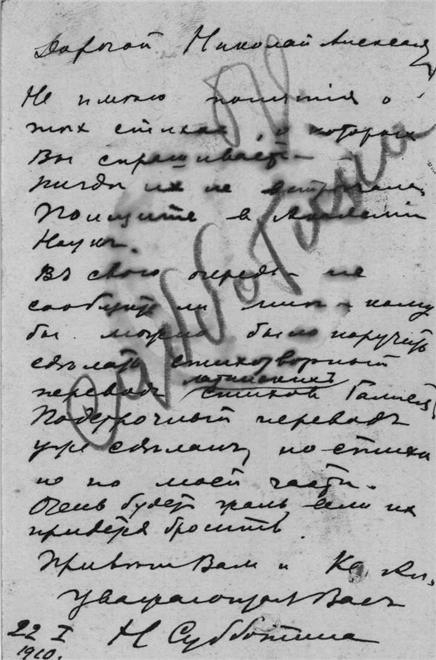 Дорогой Николай Александ
Не имею понятия о
тех стихах, о которых
Вы спрашиваете
Нигде их не встречала
Поищите в Академіи
Наукъ.
Въ свою очередь не
сообщите ли мнѣ кому
бы можно было поручить
сдѣлать стихотворный
переводъ латинскихъ стиховъ Галлея
Подстрочный переводъ
уже сдѣланъ, но стихи
не по моей части.
Очень будетъ жаль, если их
придется бросить.
Приветъ Вам и
Уважающая Васъ
22 I Н Субботина
1910.